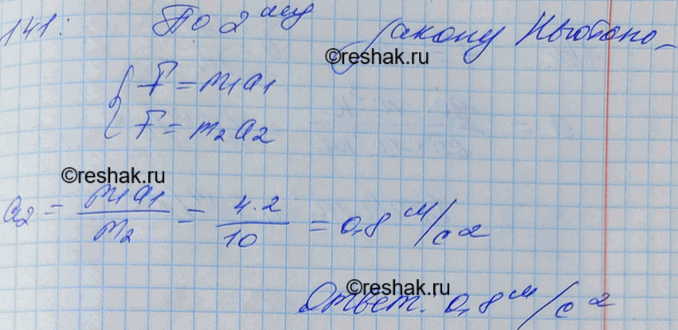 141: По 2 ому закону Ньютона-
reshak.ru
F = m1a1
F = m2a2
reshak.ru
a2 = m1a1/m2 = 4·2/10 = 0,8 м/с2
reshak.ru
Ответ. 0,8 м/с2